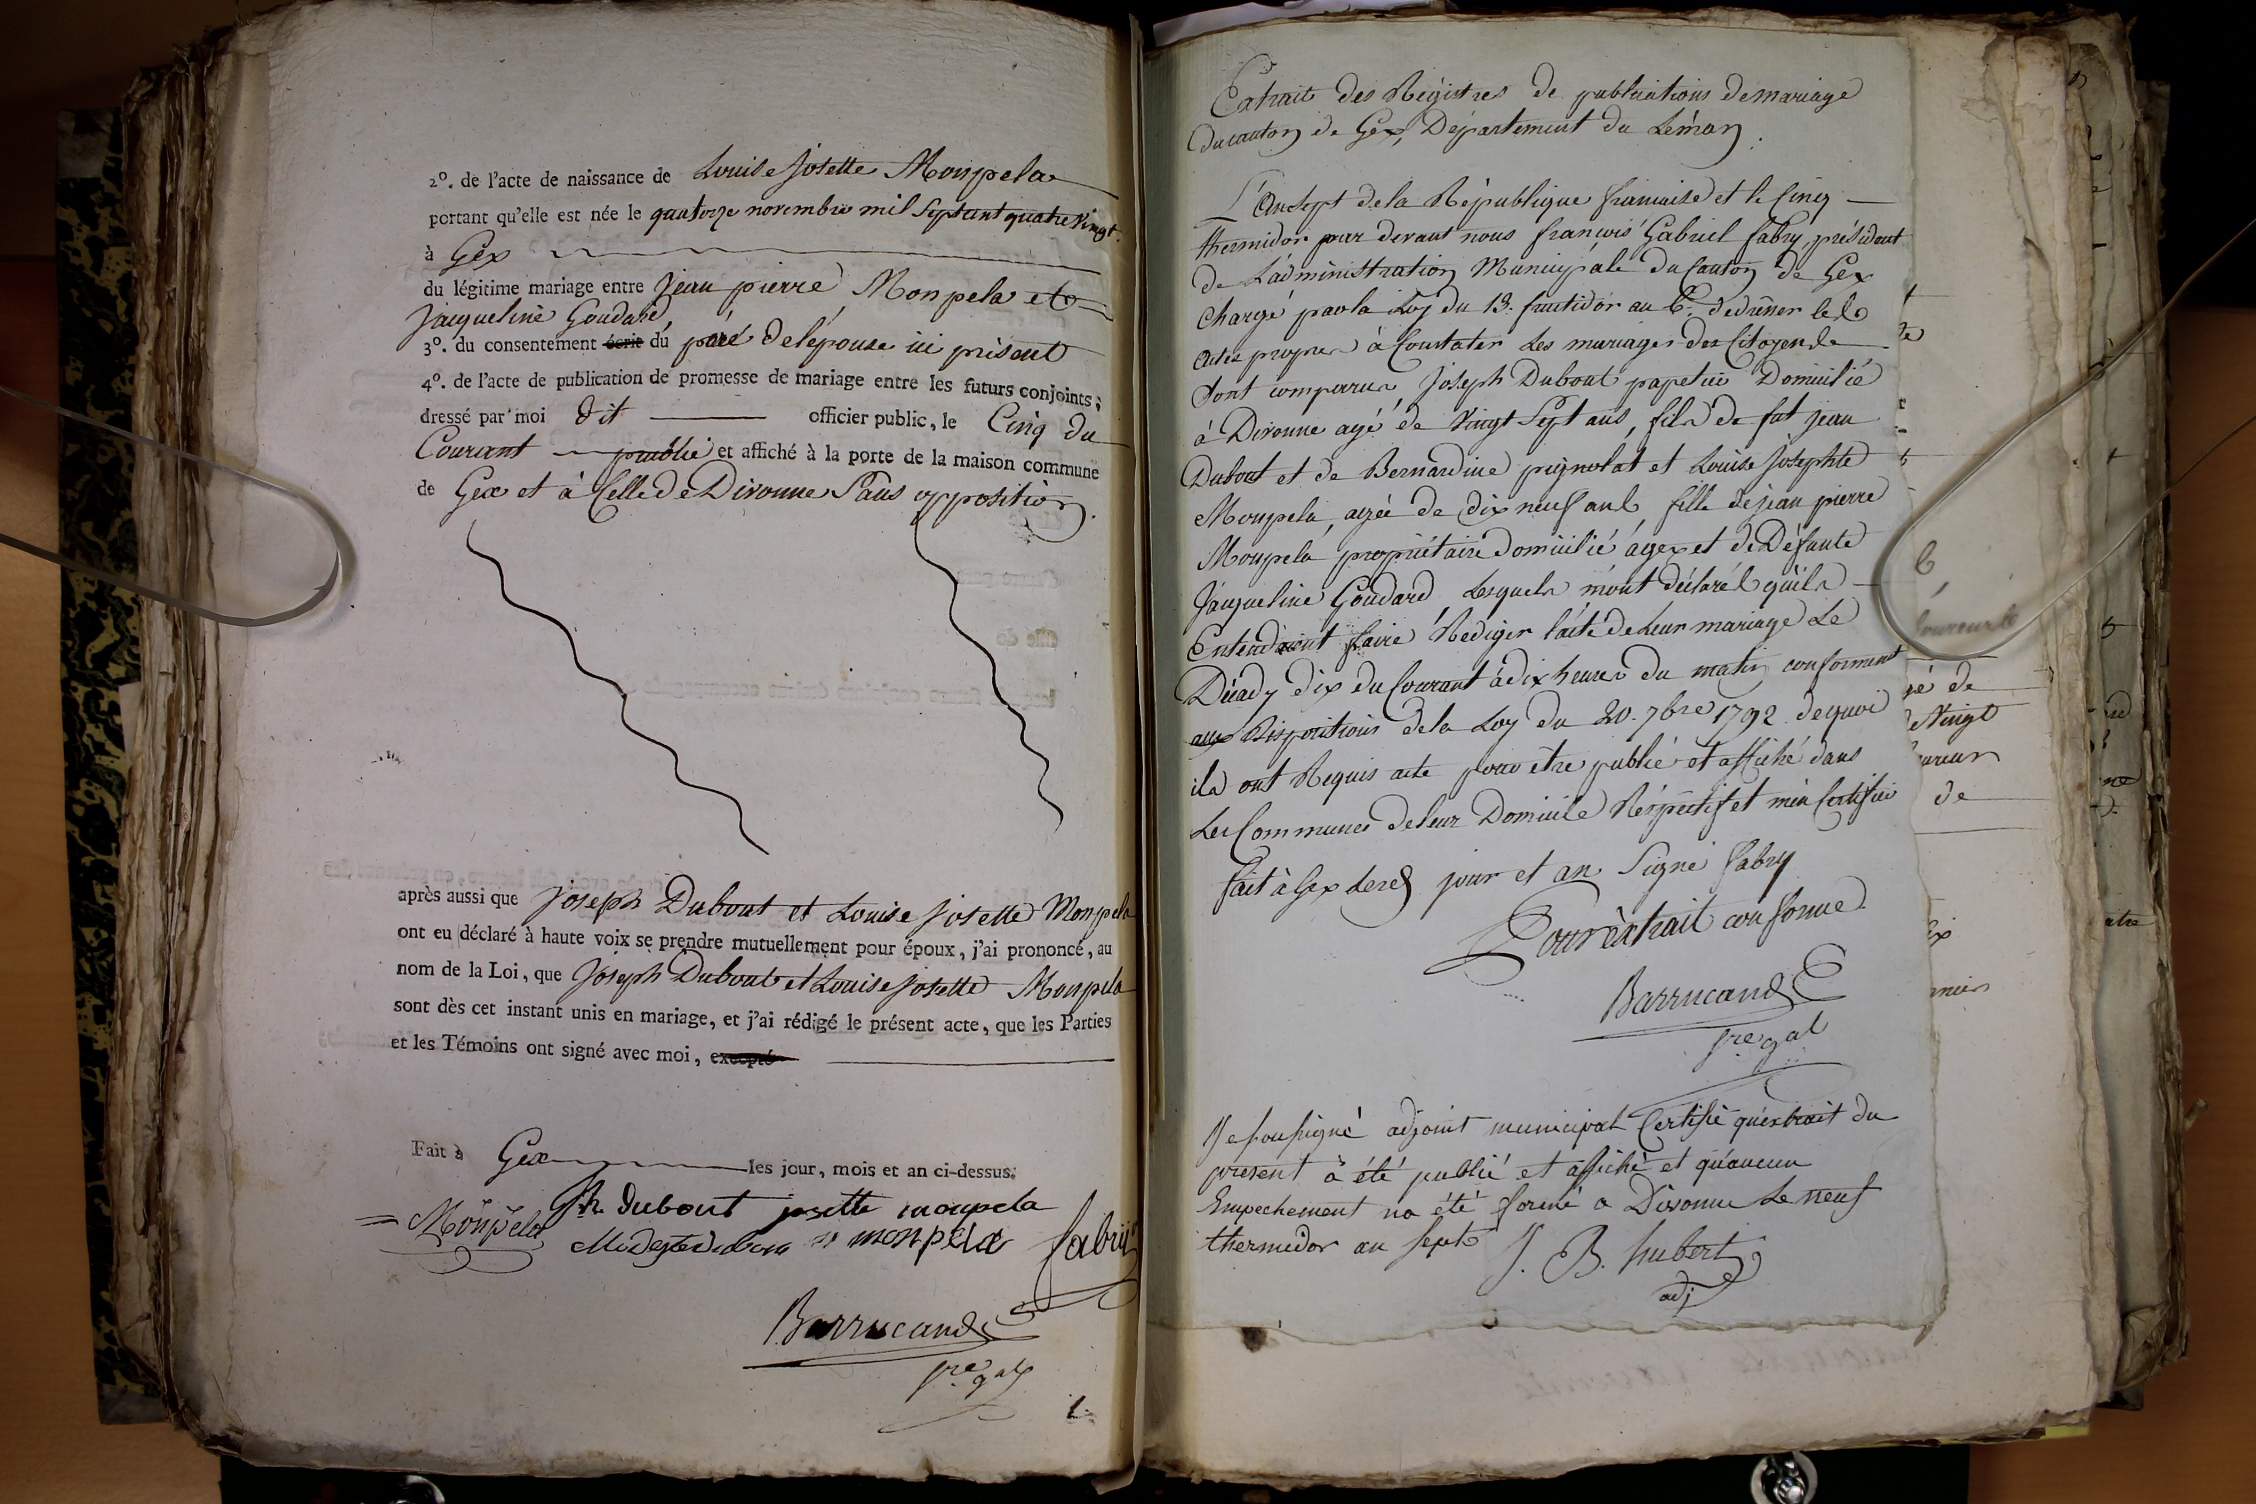 2º. de l'acte de naissance de Louise Josette Monpela
portant qu'elle est née le quatorze novembre mil Septcent quatre vingt.
à Gex
du légitime mariage entre Jean pierre Monpela et
Jacqueline Goudard
3º. du consentement écrit du pére de l'épouse ici présent
4º. de l'acte de publication de promesse de mariage entre les futurs conjoints;
dressé par moi dit officier public, le Cinq du
Courant publié et affiché à la porte de la maison commune
de Gex et à Celle de Divonne Sans opposition.
après aussi que Joseph Dubout et Louise Josette Monpela
ont eu déclaré à haute voix se prendre mutuellement pour époux, j'ai prononcé, au
nom de la Loi, que Joseph Dubout et Louise Josette Monpela
sont dès cet instant unis en mariage, et j'ai rédigé le présent acte, que les Parties
et les Témoins ont signé avec moi, excepté
Fait à Gex les jour, mois et an ci-dessus.
Jh. Dubout josette monpela
= Monpela monpela fabry
Barrucand
sre. gal
Extrait des Régistres de publications de mariage
du canton de Gex, Département du Léman.
L'an Sept de la République francaise et le Cinq
thermidor par devant nous francois Gabriel fabry, président
de L'administration Municipale du Canton de Gex
Chargé par la Loy du 13. fructidor an 6e. de dresser les
actes propres à Constater Les mariages des Citoyens
Sont comparus, Joseph Dubout papetier Domicilié
à Divonne agé de vingt Sept ans, fils de fut jean
Dubout et de Bernardine pignolat et Louise Josephte
Monpela, agée de dix neuf ans fille de jean pierre
Monpela propriétaire domicilié à gex et de Défunte
Jacqueline Goudard Lesquels m'ont déclarés qu'ils
Entendoient faire Rediger l'acte de Leur mariage Le
Décady dix du Courant à dix heures du matin conformément
aux Dispositions de la Loy du 20. 7bre 1792 de quoi
ils ont Requis acte pour être publié et affiché dans
Les Communes de leur Domicile Réspectif et m'en Certifier
fait à Gex Lesd jour et an Signé fabry
Pour èxtrait conforme
Barrucand
sre gal
Je soussigné adjoint municipal Certifie qu'extrait du
present à été publié et affiché et qu'aucun
Empechement na été formé a Divonne Le neuf
thermidor an sept J. B. hubert
adj